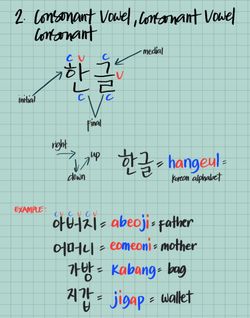 2. Consonant Vowel, Consonant Vowel
Consonant
C V C
medial
한글
V
initial
C C
final
right up
down
한글 = hangeul =
korean alphabet
EXAMPLE:
C V C V C V
아버지 = abeoji = father
어머니 = eomeoni = mother
가방 = Kabang = bag
지갑 = jigap = wallet